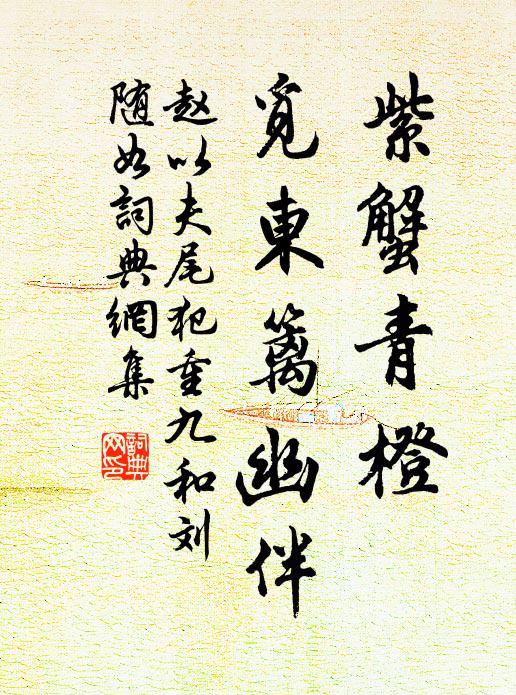 紫蟹青橙
覓東籬幽伴
赵以夫尾犯重九和刘
随如詞典網集
詞典
网印